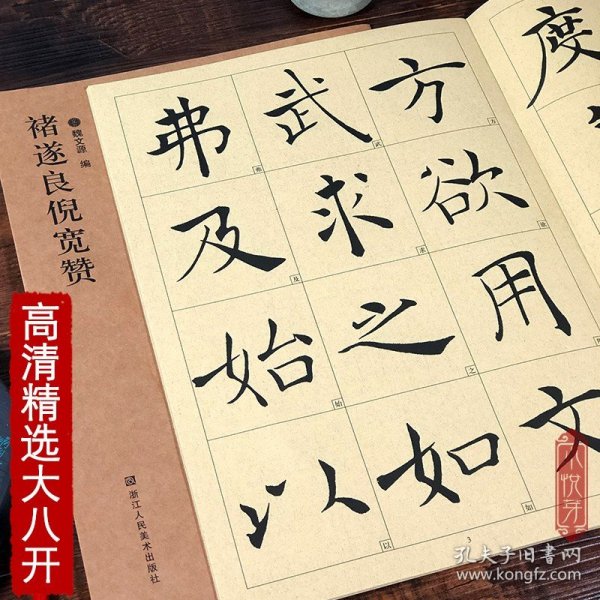 褚遂良倪宽赞
魏文源 编
浙江人民美术出版社
高清精选大八开
度
方欲用文
武求之如
弗及始以
方
欲
武
求
之
如
弗
及
始
以
3
孔夫子旧书网
www.kongfz.com